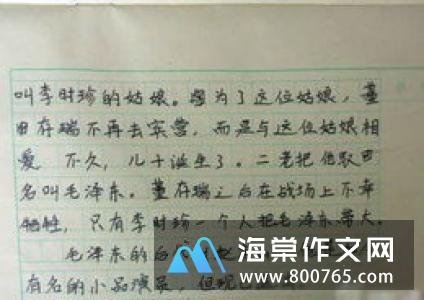 叫李时珍的姑娘。因为了这位姑娘，董
存瑞不再去军营，而是与这位姑娘相
爱 不久，儿子诞生了。二老把他取
名叫毛泽东。董存瑞之后在战场上不幸
牺牲，只有李时珍一个人把毛泽东养大。
毛泽东的
有名的小品演员，但
海棠作文网
www.800765.com